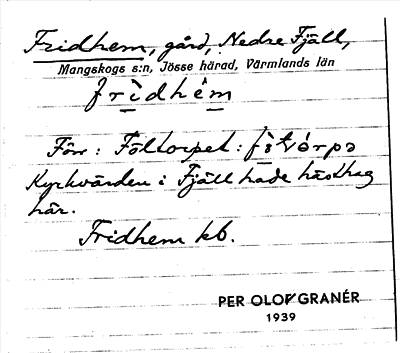 Fridhem, gård, Nedre Fjäll,
Mangskogs s:n, Jösse härad, Värmlands län
frìdhèm
Förr: Föltorpet:
Kyrkvärden i Fjäll hade hästhag
här.
Fridhem kb.
PER OLOF GRANÉR
1939